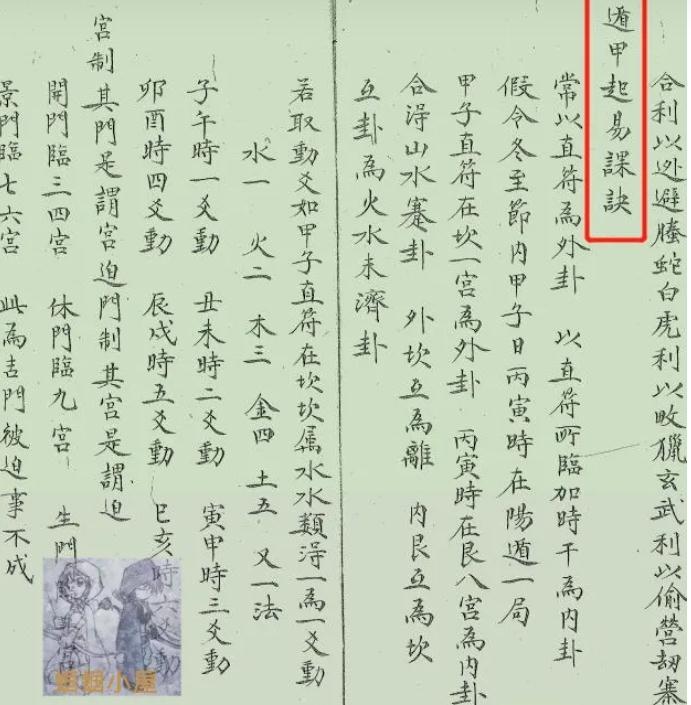 合利以逃避螣蛇白虎利以畋獵玄武利以偷營刼寨
遁甲起易課訣
常以直符為外卦 以直符所臨加時干為内卦
假令冬至節内甲子日丙寅時在陽遁一局
甲子直符在坎一宮為外卦 丙寅時在艮八宮為内卦
合淂山水蹇卦 外坎互為離 内艮互為坎
互卦為火水未濟卦
若取動爻如甲子直符在坎坎属水水類淂一為一爻動
水一 火二 木三 金四 土五 又一法
子午時一爻動 丑未時二爻動 寅申時三爻動
卯酉時四爻動 辰戌時五爻動 巳亥時六爻動
宮制其門是謂宮迫門制其宮是謂迫
開門臨三四宮 休門臨九宮 生門
景門臨七六宮 此為吉門被迫事不成
小屋